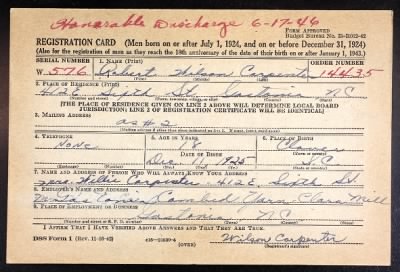 Honorable Discharge 6-17-46
FORM APPROVED
Budget Bureau No. 33-R012-42
REGISTRATION CARD (Men born on or after July 1, 1924, and on or before December 31, 1924)
(Also for the registration of men as they reach the 18th anniversary of the date of their birth on or after January 1, 1943.)
SERIAL NUMBER 1. NAME (Print) ORDER NUMBER
W 576 Robert Wilson Carpenter 14435
(First) (Middle) (Last)
2. PLACE OF RESIDENCE (Print)
412 E. Sixth St. Gastonia N C
[THE PLACE OF RESIDENCE GIVEN ON LINE 2 ABOVE WILL DETERMINE LOCAL BOARD
JURISDICTION; LINE 2 OF REGISTRATION CERTIFICATE WILL BE IDENTICAL]
3. MAILING ADDRESS
as # 2
4. TELEPHONE 5. AGE IN YEARS 6. PLACE OF BIRTH
None 18 Clover
DATE OF BIRTH
Dec 11 1925 S.C
(Exchange) (Number) (Mo.) (Day) (Yr.) (State or country)
7. NAME AND ADDRESS OF PERSON WHO WILL ALWAYS KNOW YOUR ADDRESS
Carpenter 412 E. Sixth St
8. EMPLOYER'S NAME AND ADDRESS
Combed Yarn Clara Mill
9. PLACE OF EMPLOYMENT OR BUSINESS
Gastonia N C
(Number and street or R. F. D. number) (Town) (County) (State)
I AFFIRM THAT I HAVE VERIFIED ABOVE ANSWERS AND THAT THEY ARE TRUE.
DSS Form 1 (OVER) Wilson Carpenter